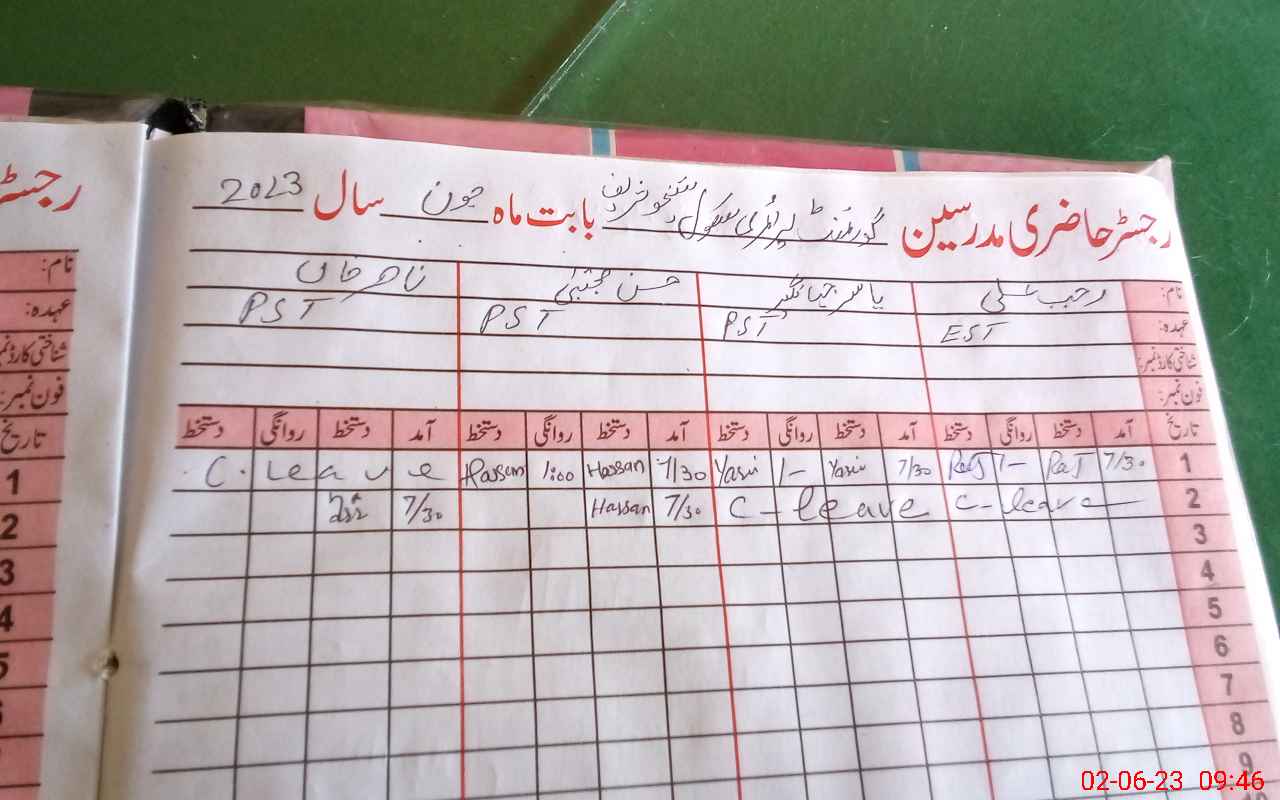 رجسٹر حاضری مدرسین گورنمنٹ پرائمری سکول بابت ماہ جون سال 2023
نام: رجب علی یاسر جہانگیر حسن مجتبیٰ ناصر خان
عہدہ: EST PST PST PST
شناختی کارڈ نمبر:
فون نمبر:
تاریخ آمد دستخط روانگی دستخط آمد دستخط روانگی دستخط آمد دستخط روانگی دستخط آمد دستخط روانگی دستخط
1 7/30 RaJ 1- RaJ 7/30 Yasir 1- Yasir 7/30 Hassan 1:00 Hassan C. Leave
2 C-leave C-leave 7/30 Hassan 7/30
3
4
5
6
7
8
9
10
رجسٹر
نام:
عہدہ:
شناختی کارڈ نمبر
فون نمبر:
تاریخ
1
2
3
4
5
02-06-23 09:46